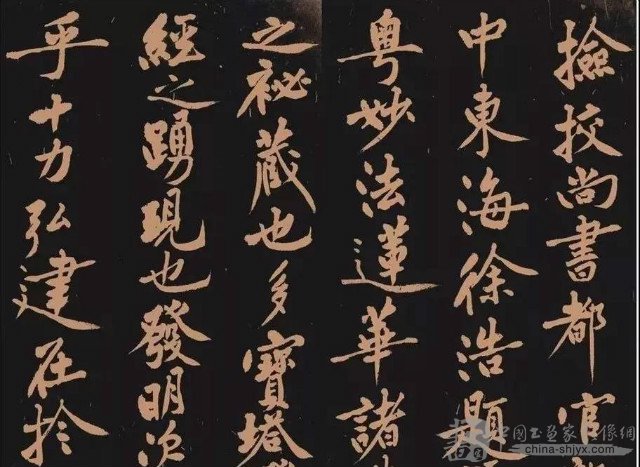 撿挍尚書都官
中東海徐浩題
粤妙法蓮華諸
之祕藏也多寶塔
經之踴現也發明
乎十力弘建在於
中国书画家肖像網
china-shjyx.com